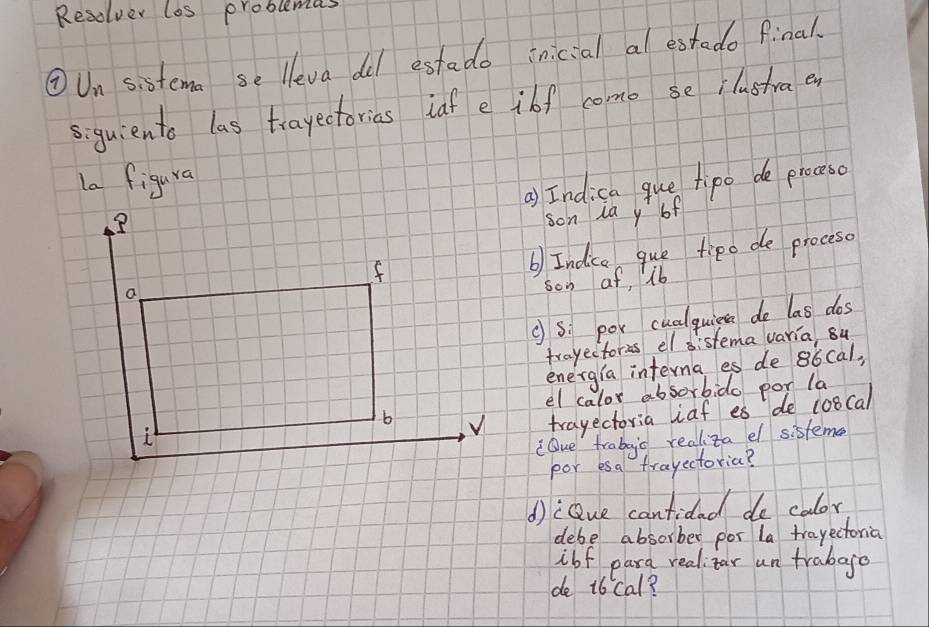 Resolver los problemas
① Un sistema se lleva del estado inicial al estado final.
siguiento las trayectorias iaf e ibf como se ilustra en
la figura
a) Indica que tipo de proceso
son ia y bf
b) Indica que tipo de proceso
son af, ib
c) Si por cualquiera de las dos
trayectorias el sistema varía, su
energía interna es de 86 cal,
el calor absorbido por la
trayectoria iaf es de 108 cal
¿Que trabajo realiza el sistema
por esa trayectoria?
d) ¿Que cantidad de calor
debe absorber por la trayectoria
ibf para realizar un trabajo
de 16 cal?
P
a
f
i
b
V